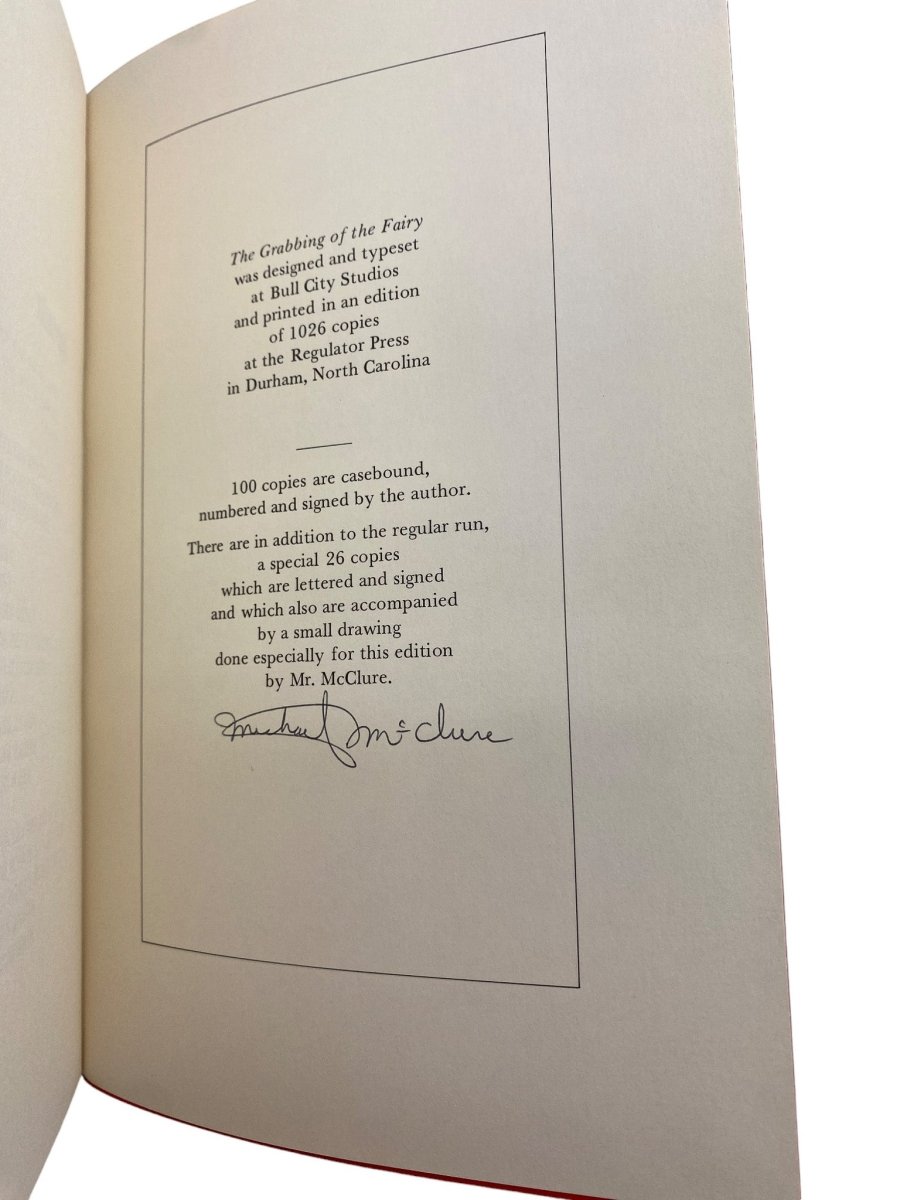 The Grabbing of the Fairy
was designed and typeset
at Bull City Studios
and printed in an edition
of 1026 copies
at the Regulator Press
in Durham, North Carolina
100 copies are casebound,
numbered and signed by the author.
There are in addition to the regular run,
a special 26 copies
which are lettered and signed
and which also are accompanied
by a small drawing
done especially for this edition
by Mr. McClure.
Michael McClure